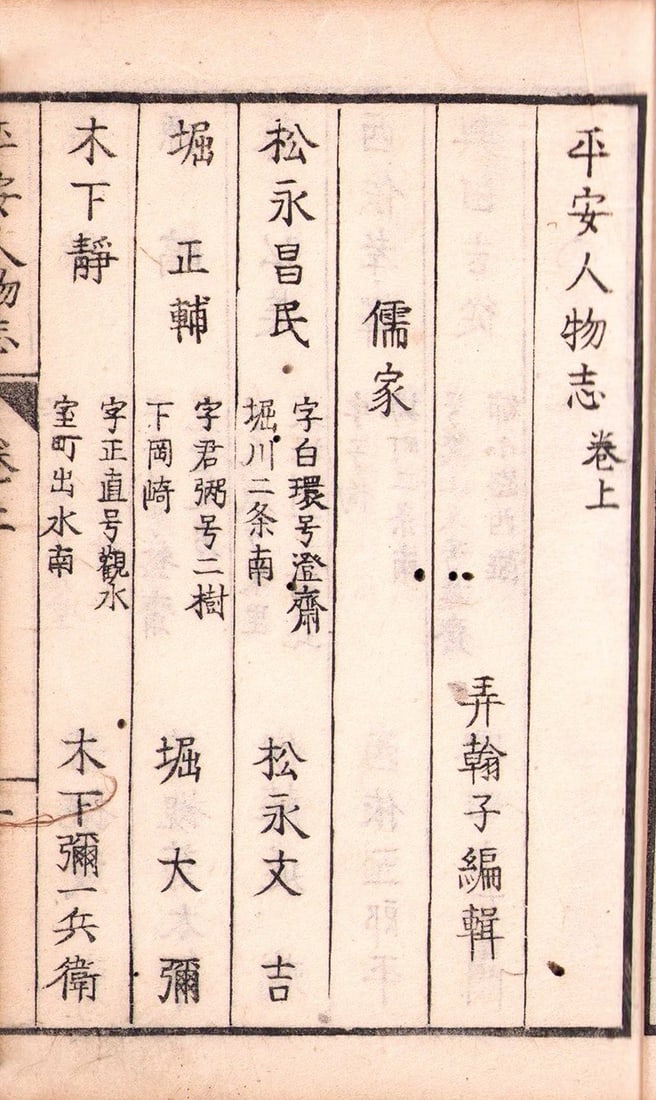 平安人物志 卷上
弄翰子編輯
儒家
松永昌民 字白環号澄齋 堀川二条南 松永丈吉
堀正輔 字君弼号二樹 下岡崎 堀大彌
木下靜 字正直号觀水 室町出水南 木下彌一兵衛
平安人物志